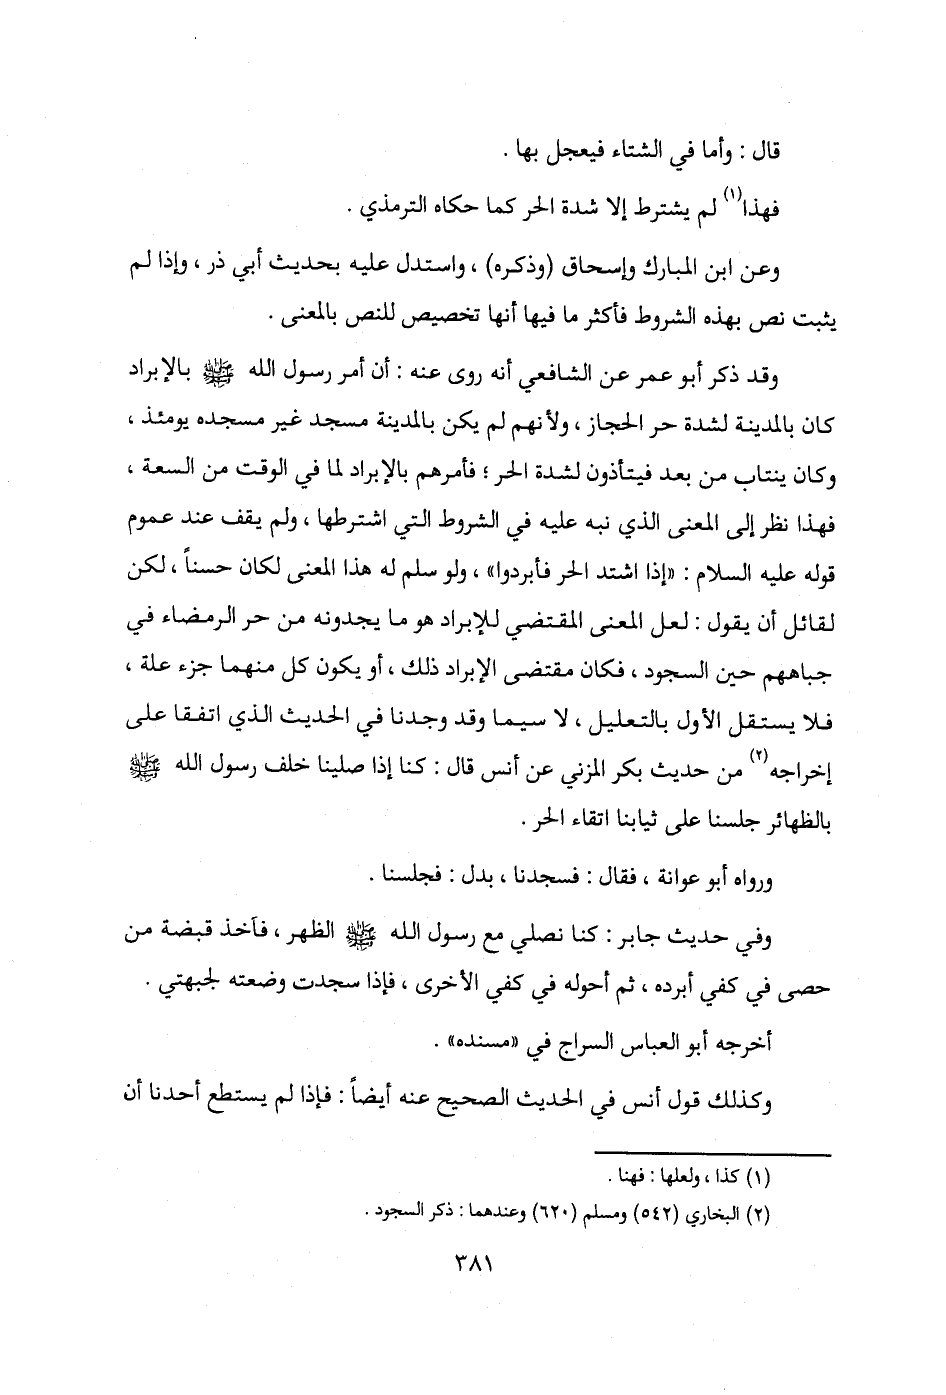 قال : وأما في الشتاء فيعجل بها .
فهذا(١) لم يشترط إلا شدة الحر كما حكاه الترمذي .
وعن ابن المبارك وإسحاق (وذكره) ، واستدل عليه بحديث أبي ذر ، وإذا لم
يثبت نص بهذه الشروط فأكثر ما فيها أنها تخصيص للنص بالمعنى .
وقد ذكر أبو عمر عن الشافعي أنه روى عنه : أن أمر رسول الله ﷺ بالإبراد
كان بالمدينة لشدة حر الحجاز ، ولأنهم لم يكن بالمدينة مسجد غير مسجده يومئذ ،
وكان ينتاب من بعد فيتأذون لشدة الحر ؛ فأمرهم بالإبراد لما في الوقت من السعة ،
فهذا نظر إلى المعنى الذي نبه عليه في الشروط التي اشترطها ، ولم يقف عند عموم
قوله عليه السلام : «إذا اشتد الحر فأبردوا» ، ولو سلم له هذا المعنى لكان حسناً ، لكن
لقائل أن يقول : لعل المعنى المقتضي للإبراد هو ما يجدونه من حر الرمضاء في
جباههم حين السجود ، فكان مقتضى الإبراد ذلك ، أو يكون كل منهما جزء علة ،
فلا يستقل الأول بالتعليل ، لا سيما وقد وجدنا في الحديث الذي اتفقا على
إخراجه(٢) من حديث بكر المزني عن أنس قال : كنا إذا صلينا خلف رسول الله ﷺ
بالظهائر جلسنا على ثيابنا اتقاء الحر .
ورواه أبو عوانة ، فقال : فسجدنا ، بدل : فجلسنا .
وفي حديث جابر : كنا نصلي مع رسول الله ﷺ الظهر ، فآخذ قبضة من
حصى في كفي أبرده ، ثم أحوله في كفي الأخرى ، فإذا سجدت وضعته لجبهتي .
أخرجه أبو العباس السراج في «مسنده» .
وكذلك قول أنس في الحديث الصحيح عنه أيضاً : فإذا لم يستطع أحدنا أن
(١) كذا ، ولعلها : فهنا .
(٢) البخاري (٥٤٢) ومسلم (٦٢٠) وعندهما : ذكر السجود .
٣٨١